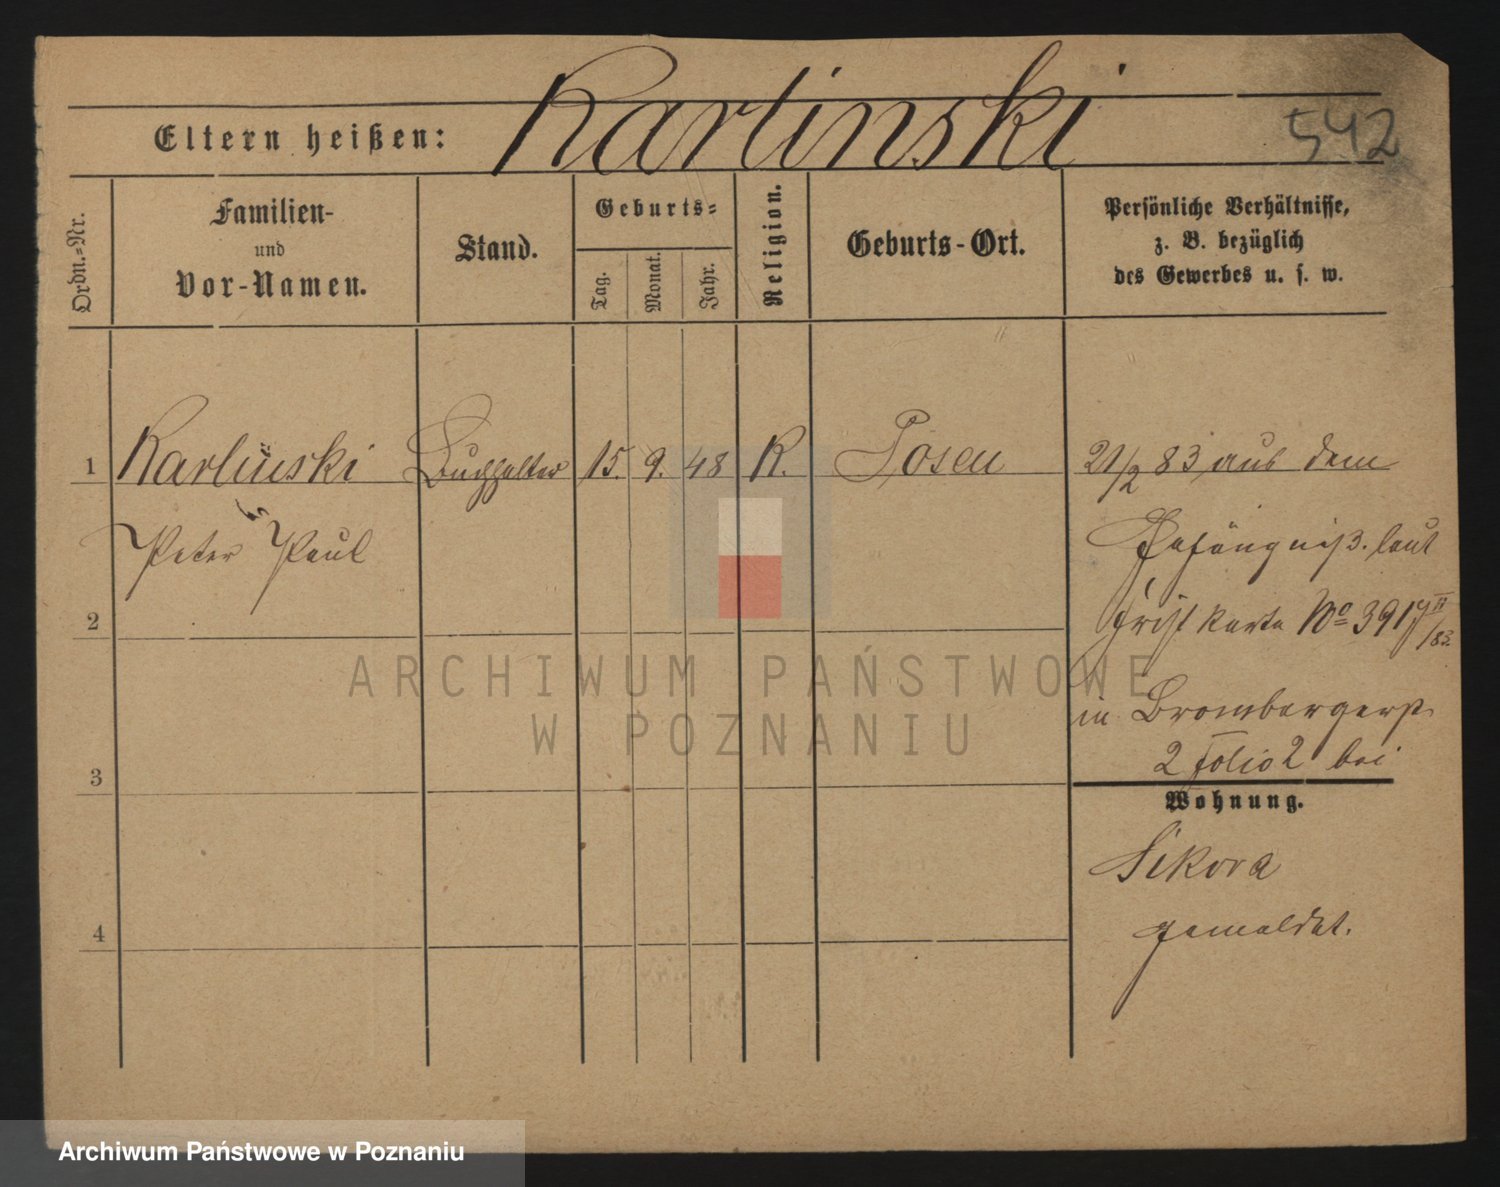 Eltern heißen: Karlinski
542
Ordn.-Nr.
Familien-
und
Vor-Namen.
Stand.
Geburts-
Tag.
Monat.
Jahr.
Religion.
Geburts-Ort.
Persönliche Verhältnisse,
z. B. bezüglich
des Gewerbes u. s. w.
1 Karlinski Buchhalter 15. 9. 48 R. Posen
Peter Paul
2
3
4
21/2 83 aus dem
Gefängniß. laut
Frist Karte No 3917 II/83.
in Brombergerst
2 Folio 2 bei
Wohnung.
Sikora
gemeldet.
ARCHIWUM PAŃSTWOWE
W POZNANIU
Archiwum Państwowe w Poznaniu